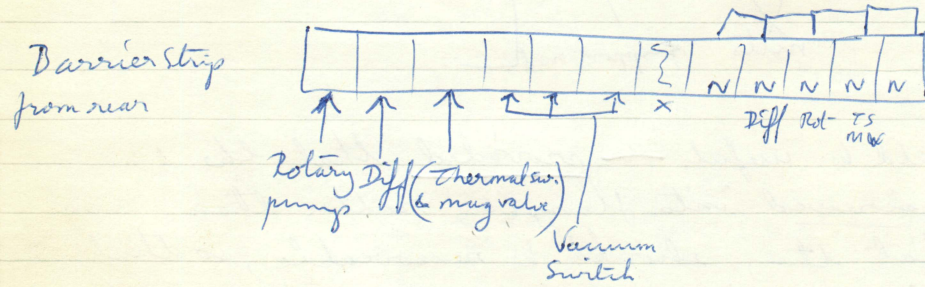 Barrier Strip
from rear
N N N N N
x Diff Rot TS
Rotary Diff (Thermal sw.
pump & mag valve)
Vacuum
Switch